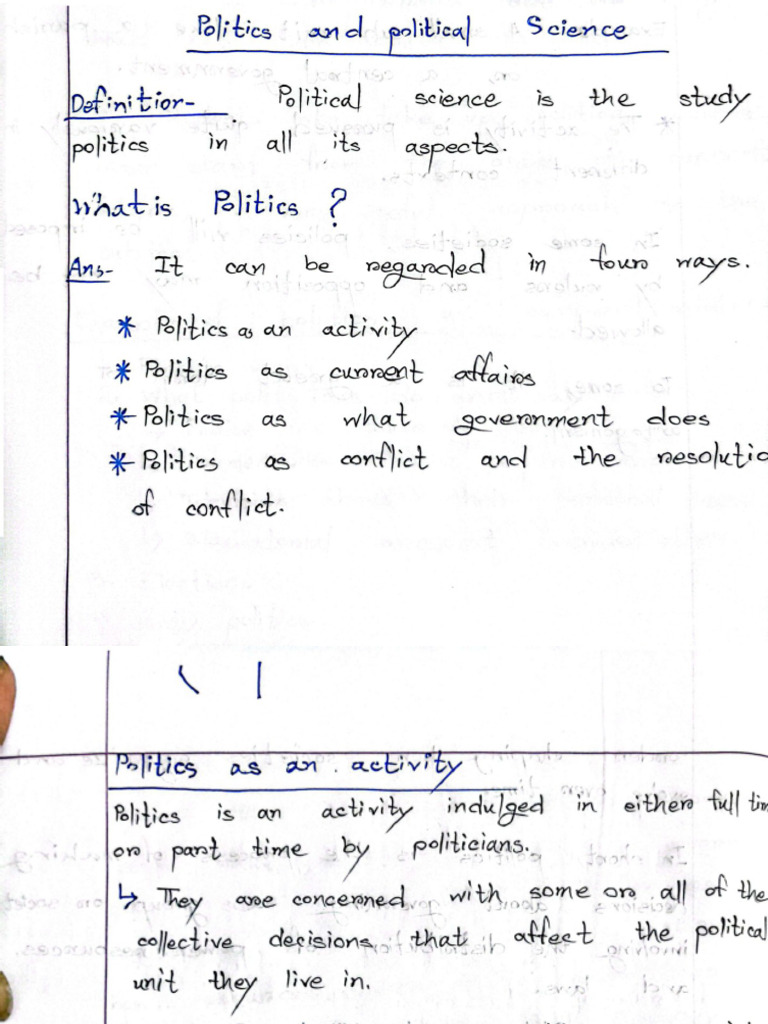 Politics and political Science
Definition- Political science is the study
politics in all its aspects.
What is Politics ?
Ans- It can be regarded in four ways.
* Politics as an activity
* Politics as current affairs
* Politics as what government does
* Politics as conflict and the resolutio
of conflict.
Politics as an activity
Politics is an activity indulged in either full tim
or part time by politicians.
↳ They are concerned with some or all of the
collective decisions that affect the political
unit they live in.